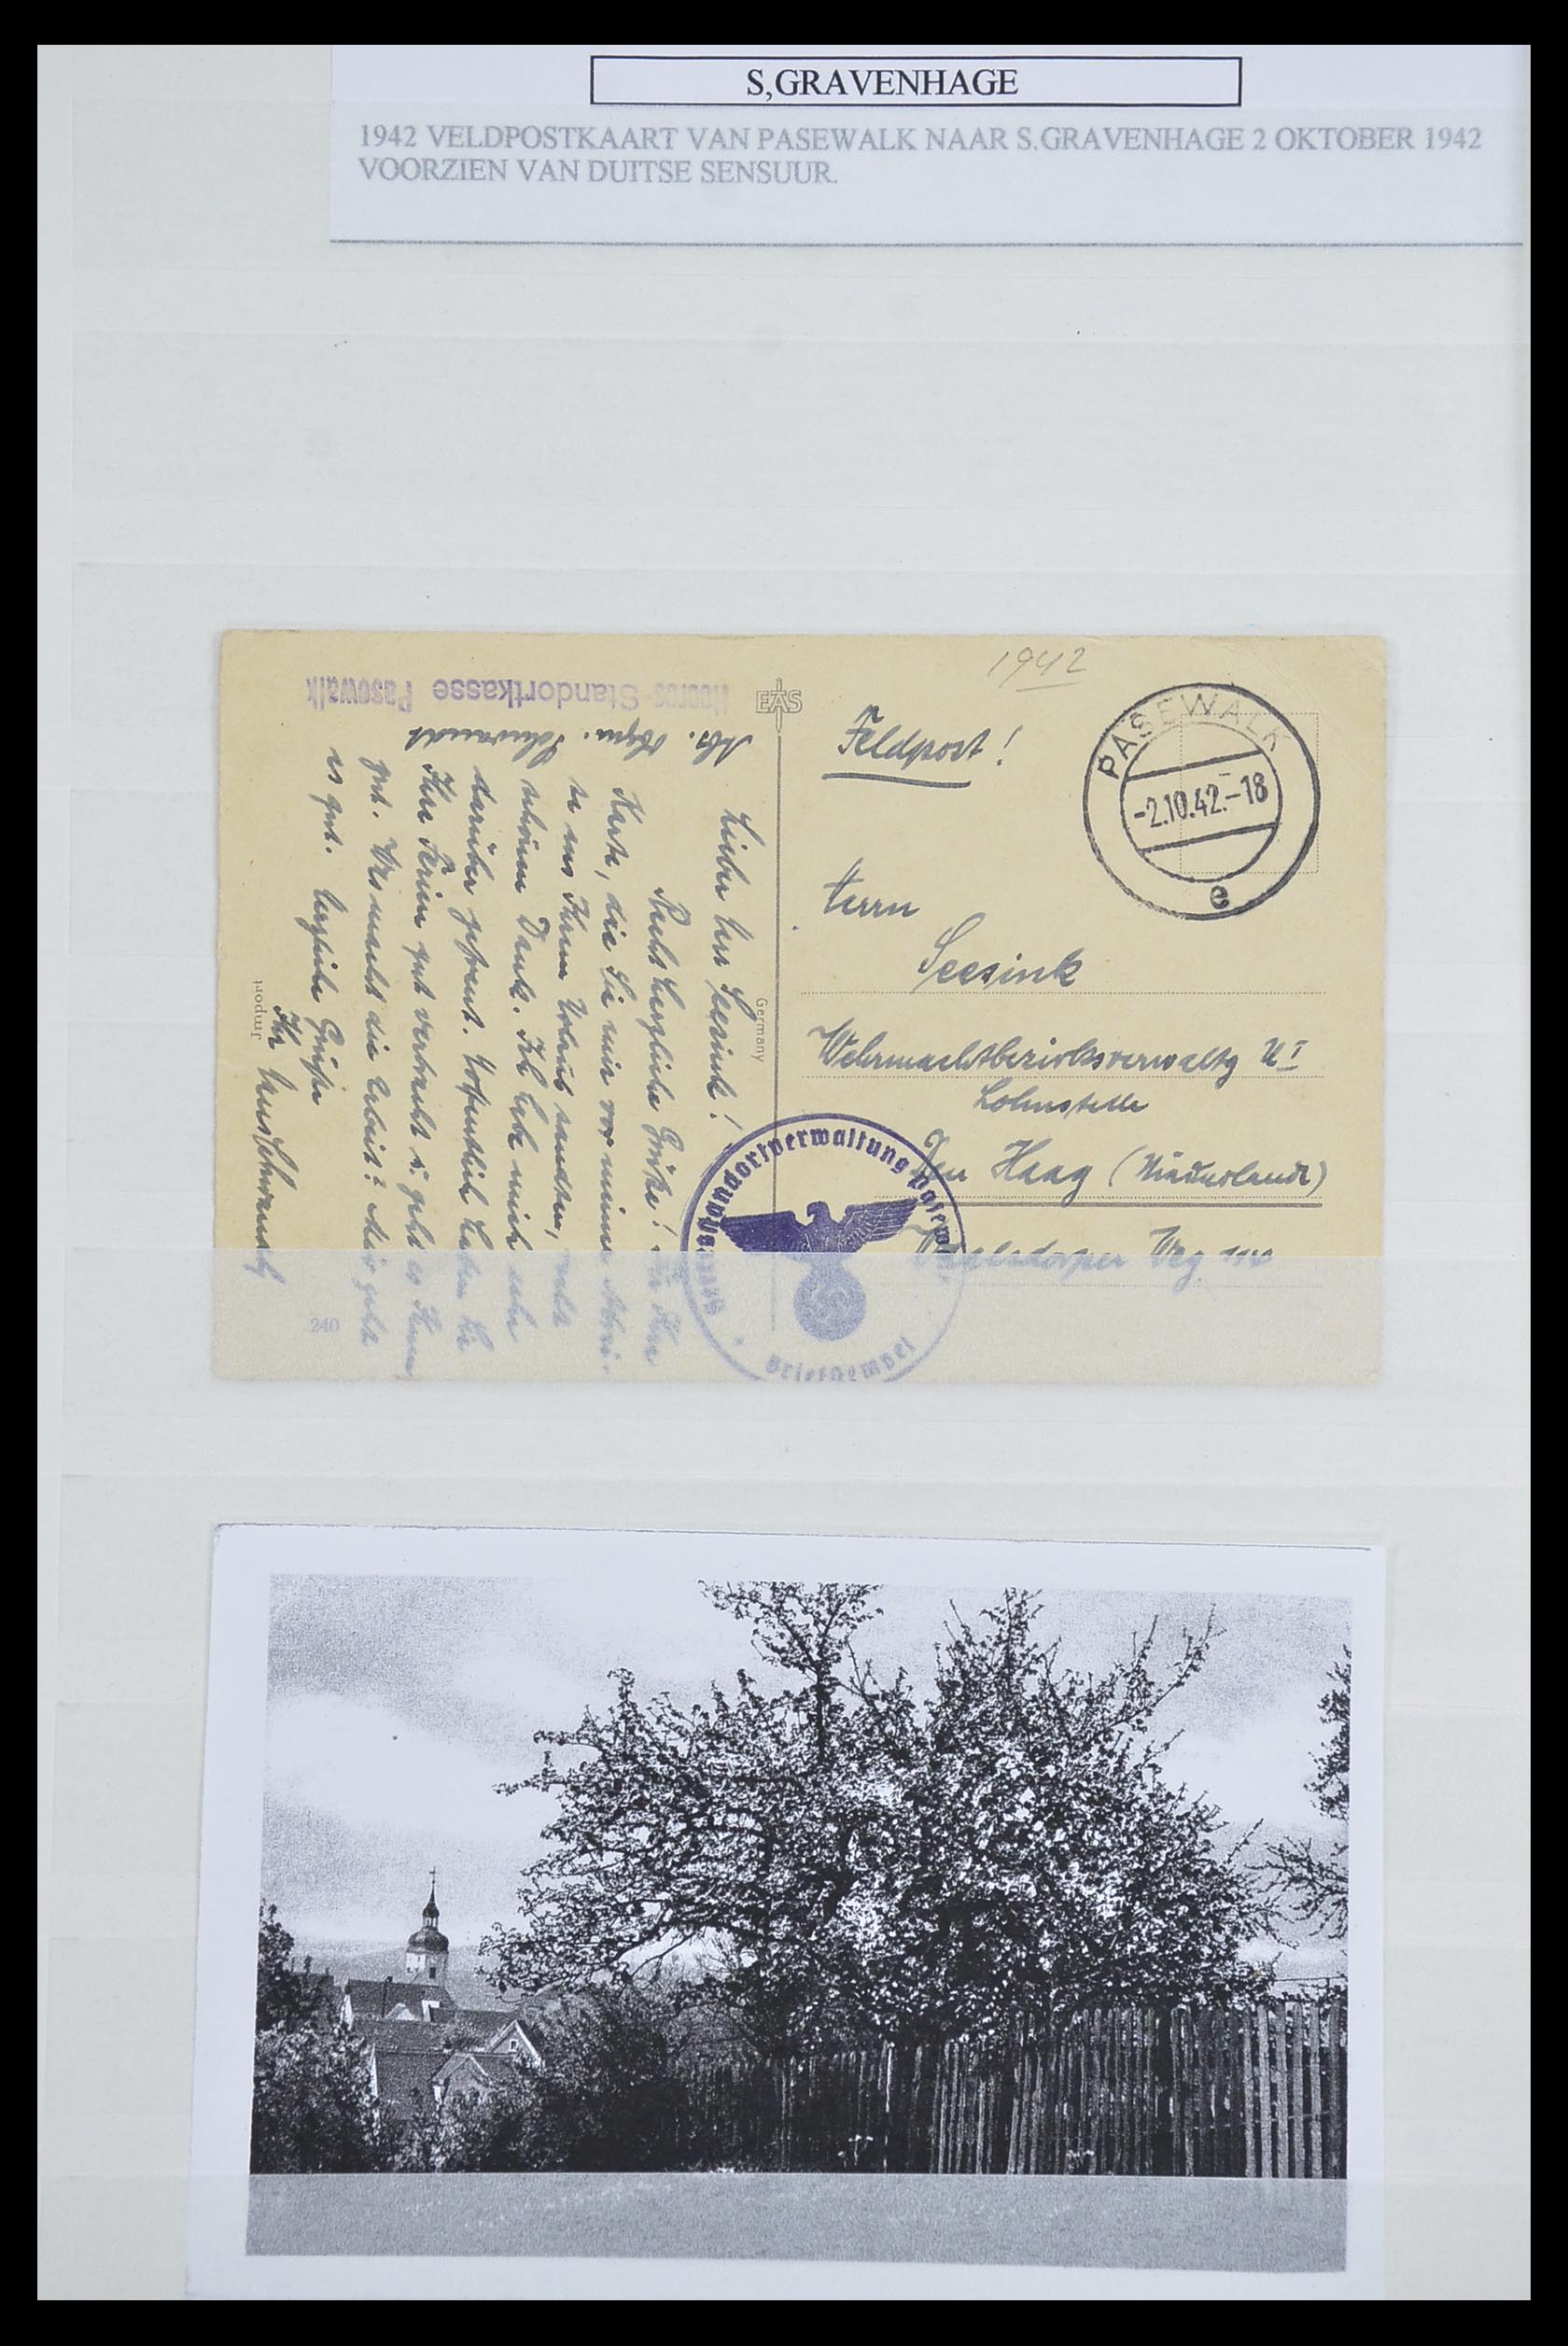 S,GRAVENHAGE
1942 VELDPOSTKAART VAN PASEWALK NAAR S.GRAVENHAGE 2 OKTOBER 1942
VOORZIEN VAN DUITSE SENSUUR.
1942
Heeres-Standortkasse Pasewalk
EAS
Feldpost!
PASEWALK
-2.10.42.-18
e
Herrn
Seesink
Wehrmachtbezirksverwaltg
Lohnstelle
Den Haag (Niederlande)
Weg
Germany
Lieber Herr Seesink!
Recht herzliche Grüße! Ihre
Karte, die Sie mir vor meine
Ihrem Urlaub sandten,
schönen Dank. Ich habe mich sehr
darüber gefreut. Hoffentlich haben Sie
Ihre Ferien gut verbracht u. geht es Ihnen
gut. Was macht die Arbeit? Mir geht
es gut. Herzliche Grüße
Ihr
Import
240
Heeresstandortverwaltung Pasewalk
Briefstempel